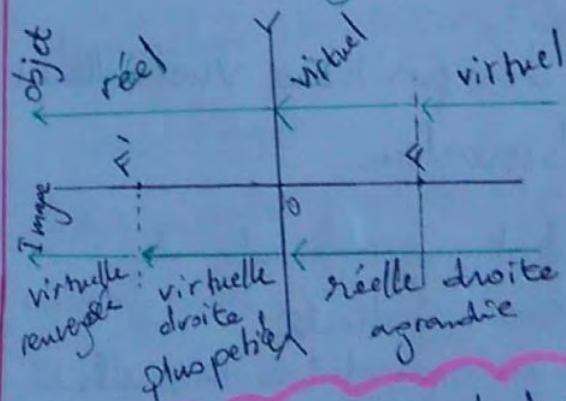 objet
réel
virtuel
virtuel
F'
F
Image
O
virtuelle
renversée
virtuelle
droite
plus petite
réelle droite
agrandie